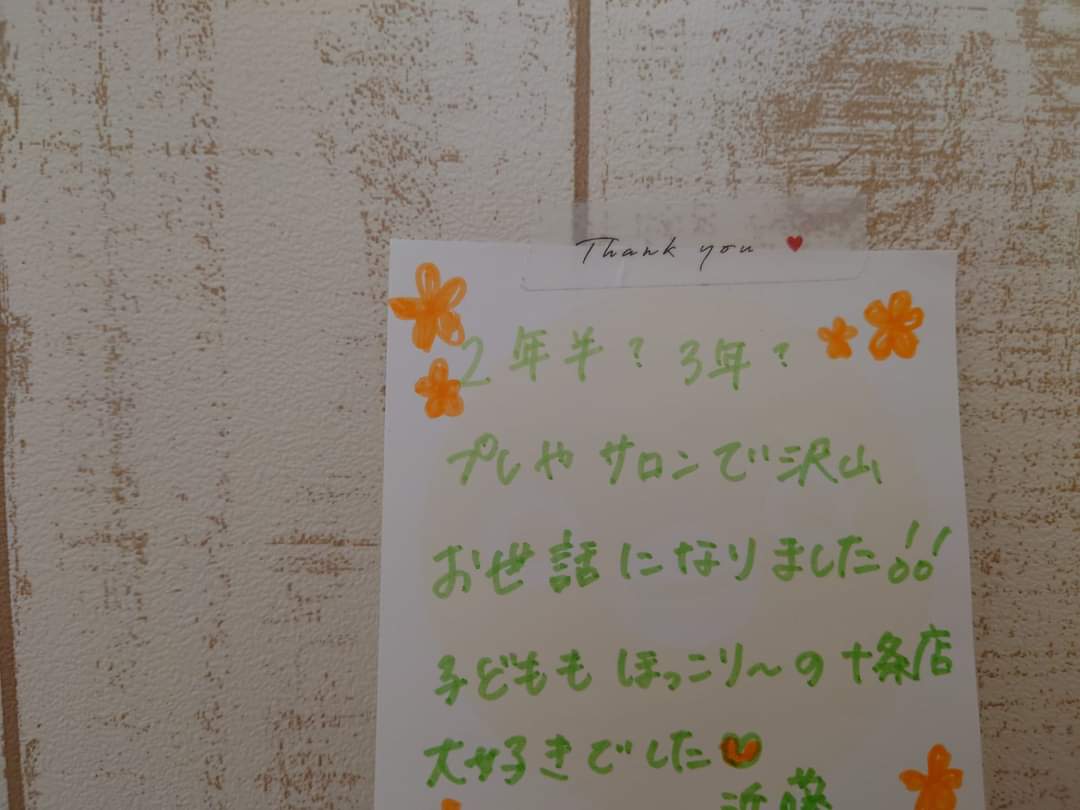 Thank you ♥
2年半？ 3年？
プレやサロンで沢山
お世話になりました!!
子どもも ほっこり〜の十条店
大好きでした♡
近藤